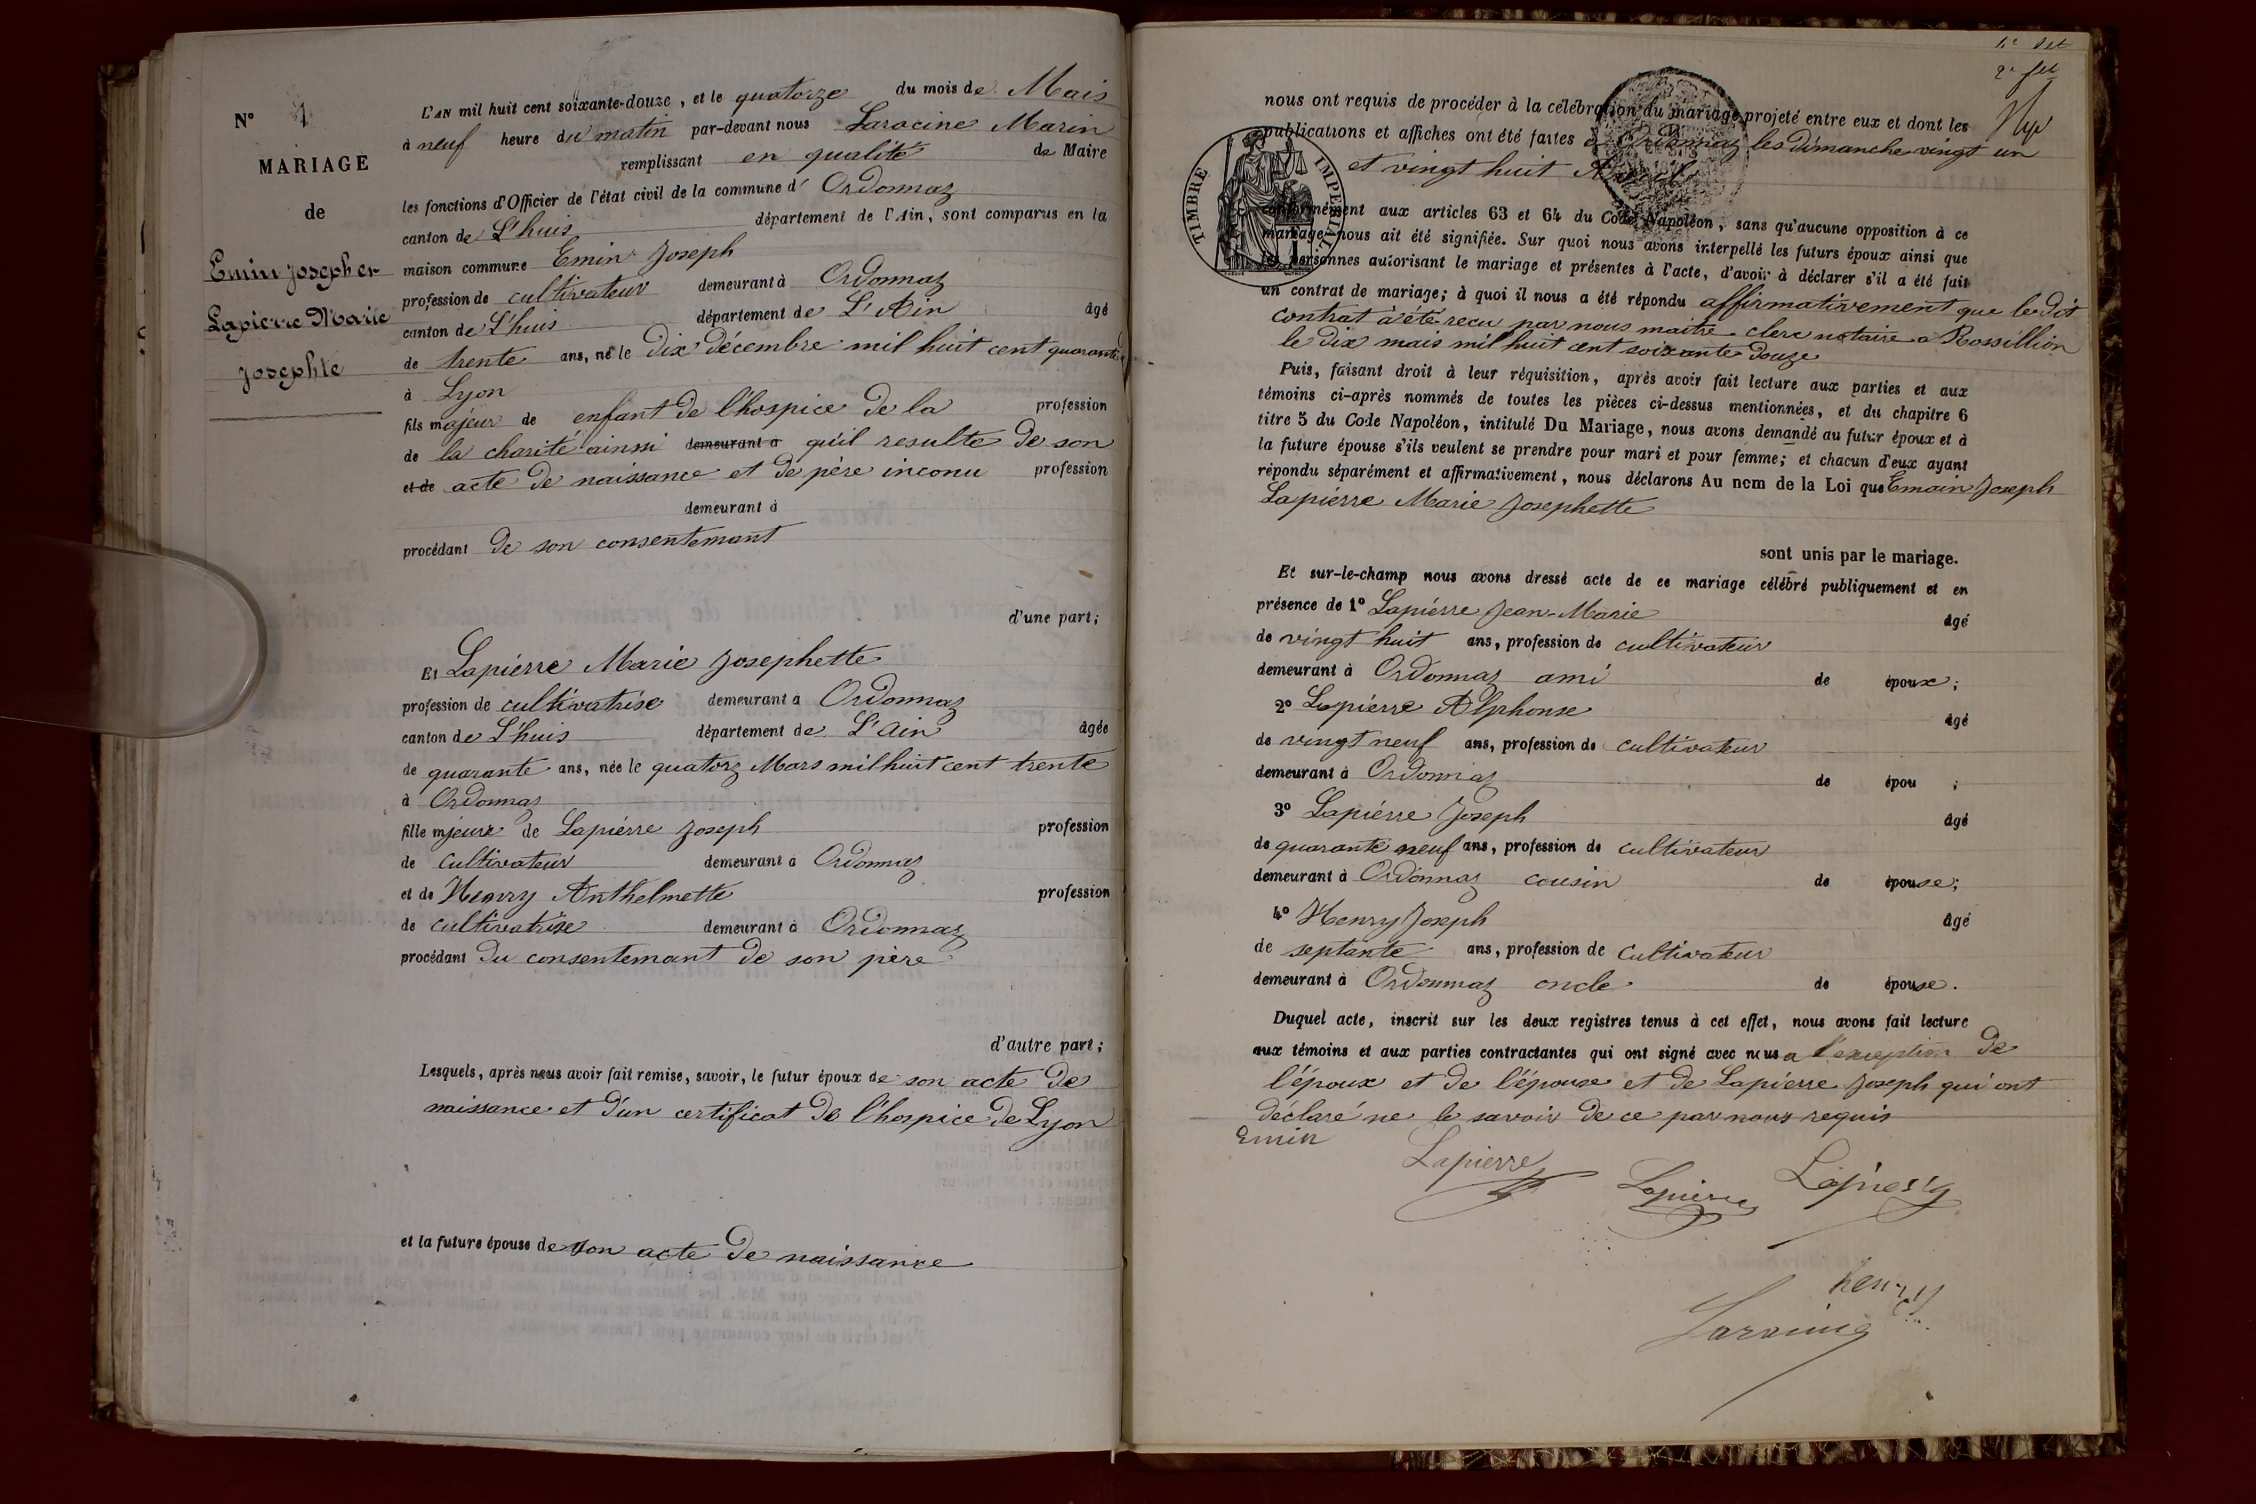 N° 1
MARIAGE
de
Emin Joseph et
Lapierre Marie
Josephte
L'AN mil huit cent soixante-douze, et le quatorze du mois de Mais
à neuf heure du matin par-devant nous Laracine Marin
remplissant en qualité de Maire
les fonctions d'Officier de l'état civil de la commune d' Ordonnaz
canton de L'huis département de l'Ain, sont comparus en la
maison commune Emin Joseph
profession de cultivateur demeurant à Ordonnaz
canton de L'huis département de L'Ain âgé
de trente ans, né le dix décembre mil huit cent quarante
à Lyon
fils majeur de enfant de l'hospice de la profession
de la charité ainssi demeurant à qu'il resulte de son
et de acte de naissance et de père inconu profession
demeurant à
procédant de son consentemant
d'une part;
Et Lapierre Marie Josephette
profession de cultivatrise demeurant à Ordonnaz
canton de L'huis département de L'Ain âgée
de quarante ans, née le quatorz Mars mil huit cent trente
à Ordonnaz
fille mjeure de Lapiérre Joseph profession
de cultivateur demeurant à Ordonnaz
et de Henry Anthelmette profession
de cultivatrise demeurant à Ordonnaz
procédant du consentemant de son père
d'autre part;
Lesquels, après nous avoir fait remise, savoir, le futur époux de son acte de
naissance et d'un certificat de l'hospice de Lyon
et la future épouse de son acte de naissance
nous ont requis de procéder à la célébration du mariage projeté entre eux et dont les
publications et affiches ont été faites à Ordonnaz les dimanche vingt un
et vingt huit Avril
TIMBRE IMPERIAL
conformément aux articles 63 et 64 du Code Napoléon, sans qu'aucune opposition à ce
mariage nous ait été signifiée. Sur quoi nous avons interpellé les futurs époux ainsi que
les personnes autorisant le mariage et présentes à l'acte, d'avoir à déclarer s'il a été fait
un contrat de mariage; à quoi il nous a été répondu affirmativement que le dit
contrat à été recu par nous maitre clerc notaire a Rossillion
le dix mais mil huit cent soixante douze
Puis, faisant droit à leur réquisition, après avoir fait lecture aux parties et aux
témoins ci-après nommés de toutes les pièces ci-dessus mentionnées, et du chapitre 6
titre 5 du Code Napoléon, intitulé Du Mariage, nous avons demandé au futur époux et à
la future épouse s'ils veulent se prendre pour mari et pour femme; et chacun d'eux ayant
répondu séparément et affirmativement, nous déclarons Au nom de la Loi que Emain Joseph
Lapiérre Marie Josephette
sont unis par le mariage.
Et sur-le-champ nous avons dressé acte de ce mariage célébré publiquement et en
présence de 1° Lapiérre Jean-Marie âgé
de vingt huit ans, profession de cultivateur
demeurant à Ordonnaz ami de époux;
2° Lapiérre Alphonse âgé
de vingt neuf ans, profession de cultivateur
demeurant à Ordonnaz de épou ;
3° Lapiérre Joseph âgé
de quarante neuf ans, profession de cultivateur
demeurant à Ordonnaz cousin de épouse;
4° Henry Joseph âgé
de septante ans, profession de cultivateur
demeurant à Ordonnaz oncle de épouse.
Duquel acte, inscrit sur les deux registres tenus à cet effet, nous avons fait lecture
aux témoins et aux parties contractantes qui ont signé avec nous a l'exception de
l'époux et de l'épouse et de Lapiérre Joseph qui ont
déclaré ne le savoir de ce par nous requis
Emin
Lapierre
Lapierre
Lapierre
henry
Laracine